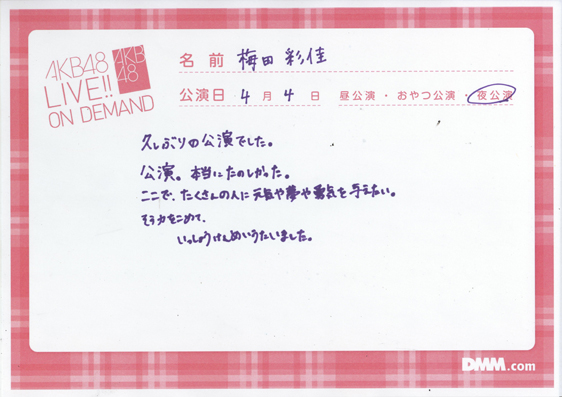 AKB48
LIVE!!
ON DEMAND
AKB
48
名前 梅田 彩佳
公演日 4月4日 昼公演・おやつ公演・夜公演
久しぶりの公演でした。
公演。本当にたのしかった。
ここで、たくさんの人に元気や夢や勇気を与えたい。
そう力をこめて、
いっしょうけんめいうたいました。
DMM.com